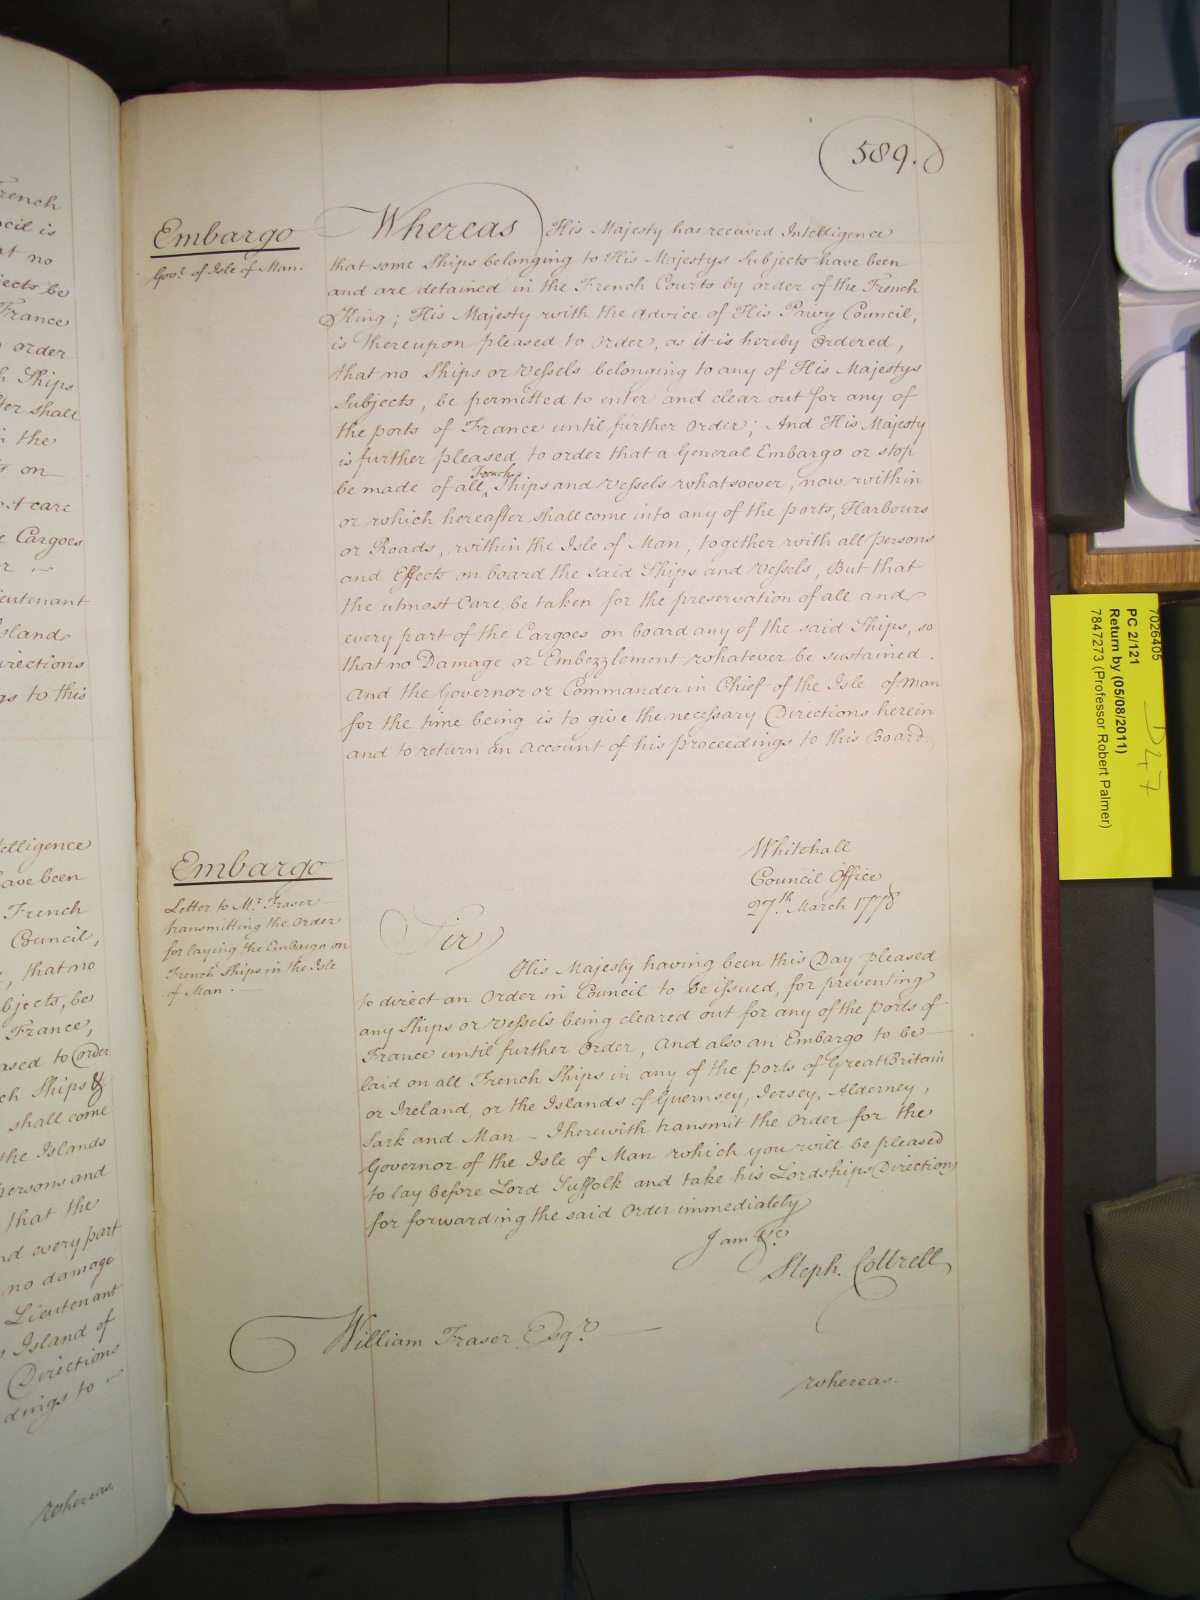 589.
Embargo
Gov.r of Isle of Man.
Whereas His Majesty has received Intelligence
that some Ships belonging to His Majestys Subjects have been
and are detained in the French Courts by order of the French
King; His Majesty with the advice of His Privy Council,
is thereupon pleased to order, as it is hereby Ordered,
that no Ships or Vessels belonging to any of His Majestys
Subjects, be permitted to enter and clear out for any of
the ports of France until further order; And His Majesty
is further pleased to order that a General Embargo or stop
be made of all French Ships and Vessels whatsoever, now within
or which hereafter shall come into any of the ports, Harbours
or Roads, within the Isle of Man, together with all persons
and Effects on board the said Ships and Vessels, But that
the utmost Care be taken for the preservation of all and
every part of the Cargoes on board any of the said Ships, so
that no Damage or Embezzlement whatever be sustained.
And the Governor or Commander in Chief of the Isle of Man
for the time being is to give the necessary Directions herein
and to return an account of his proceedings to this Board.
Whitehall
Council Office
27.th March 1778
Embargo
Letter to Mr. Fraser
transmitting the Order
for laying the Embargo on
French Ships in the Isle
of Man.
Sir
His Majesty having been this Day pleased
to direct an Order in Council to be issued, for preventing
any Ships or Vessels being cleared out for any of the Ports of
France until further Order, and also an Embargo to be
laid on all French Ships in any of the Ports of Great Britain
or Ireland, or the Islands of Guernsey, Jersey, Alderney,
Sark and Man - I herewith transmit the Order for the
Governor of the Isle of Man which you will be pleased
to lay before Lord Suffolk and take his Lordships Directions
for forwarding the said Order immediately
I am &c
Steph. Cottrell
William Fraser Esqr.
whereas.
French
ncil is
at no
jects be
France
order
h Ships
fter shall
in the
on
ost care
Cargoes
eutenant
Island
irections
gs to this
telligence
have been
French
Council,
, that no
bjects, be
France,
ased to Order
ch Ships &
shall come
the Islands
persons and
that the
nd every part
no damage
Lieutenant
Island of
Directions
dings to
whereas.
7026405
PC 2/121
Return by (05/08/2011)
7847273 (Professor Robert Palmer)
D47